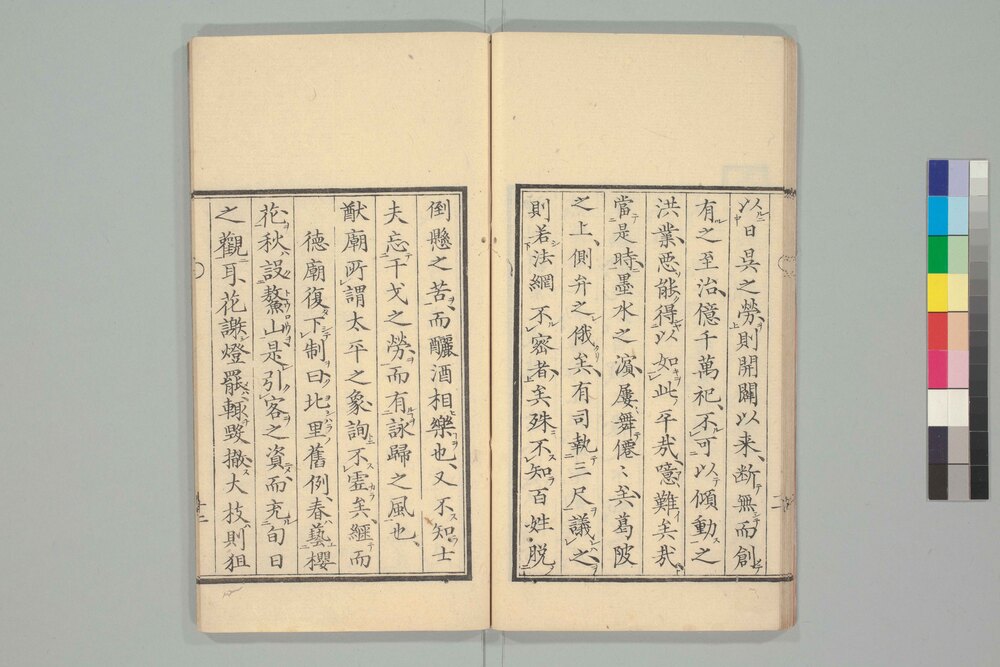 以日昃之勞則開闢以来断無而創
有之至治億千萬祀不可以傾動之
洪業悪能得以如此乎㢤噫難矣㢤
當是時墨水之濵屢舞僊〻矣葛陂
之上側弁之俄矣有司執三尺議之
則若法網不密者矣殊不知百姓脱
倒懸之苦而釃酒相樂也又不知士
夫忘干戈之勞而有詠歸之風也
猷廟所謂太平之象詢不虚矣經而
徳廟復下制曰北里舊例春藝櫻
花秋設鰲山是引客之資而充旬日
之觀耳花謝燈罷輙毀撤大枝則狙